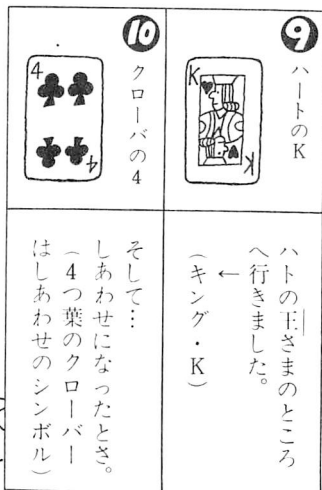 ❾
ハートのK
K
K
ハトの王さまのところ
へ行きました。
↑
(キング・K)
❿
クローバの4
4
4
そして…
しあわせになったとさ。
(4つ葉のクローバー
はしあわせのシンボル)